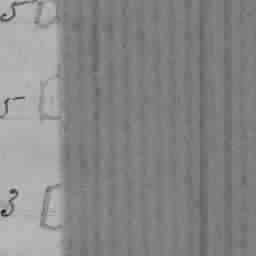 5
5
3